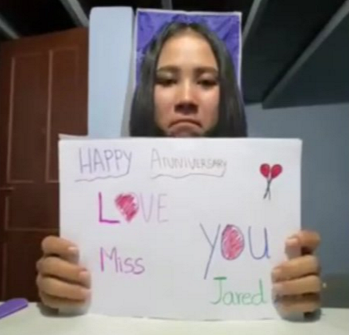 HAPPY ANNIVERSARY
LOVE
YOU
Miss
Jared